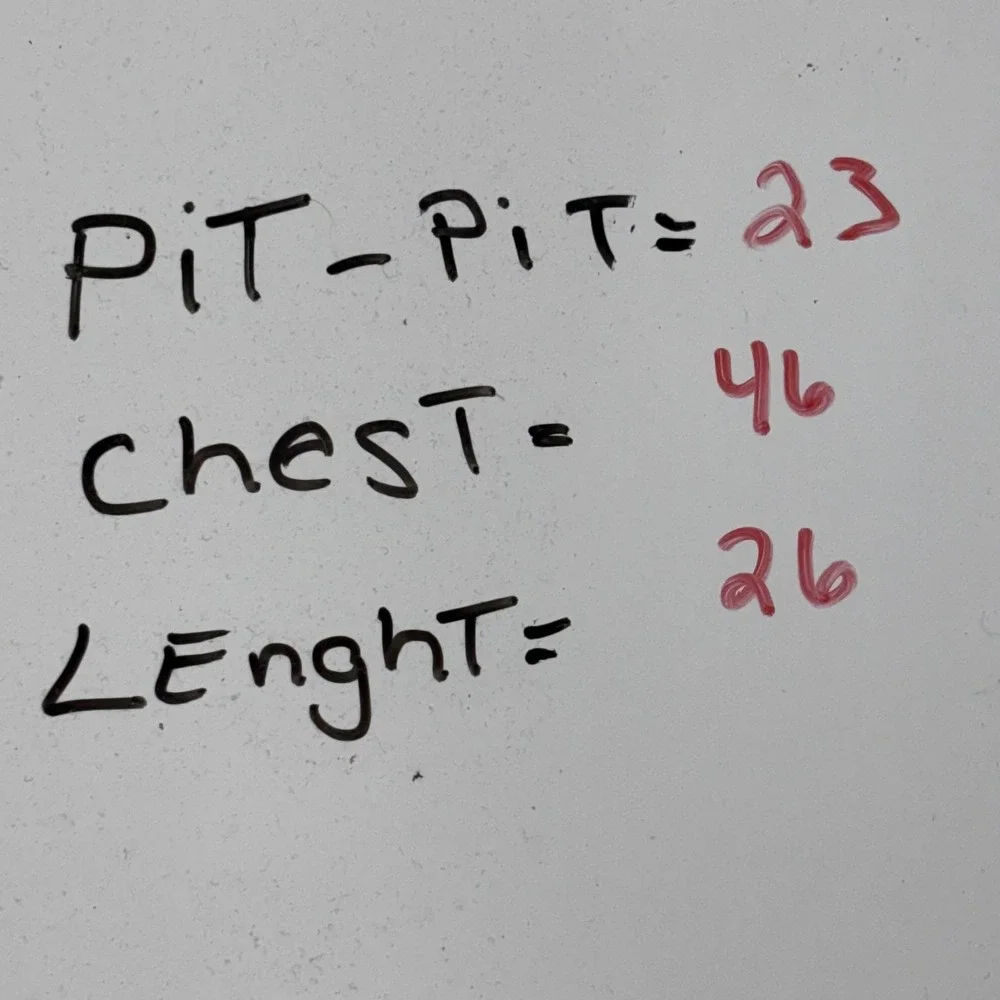 PiT - PiT = 23
ChesT = 46
LEnghT = 26